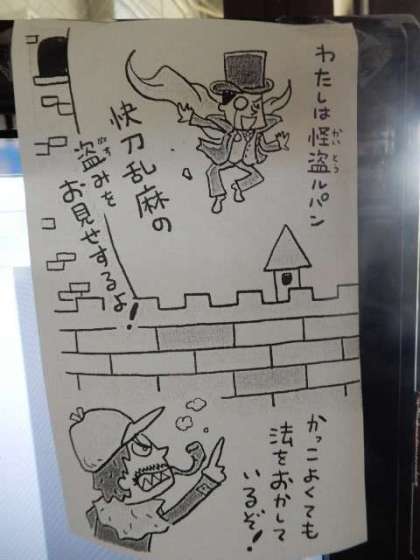 わたしは怪盗ルパン
かいとう
快刀乱麻の
盗みを
お見せするよ!
かっこよくても
法をおかして
いるぞ!